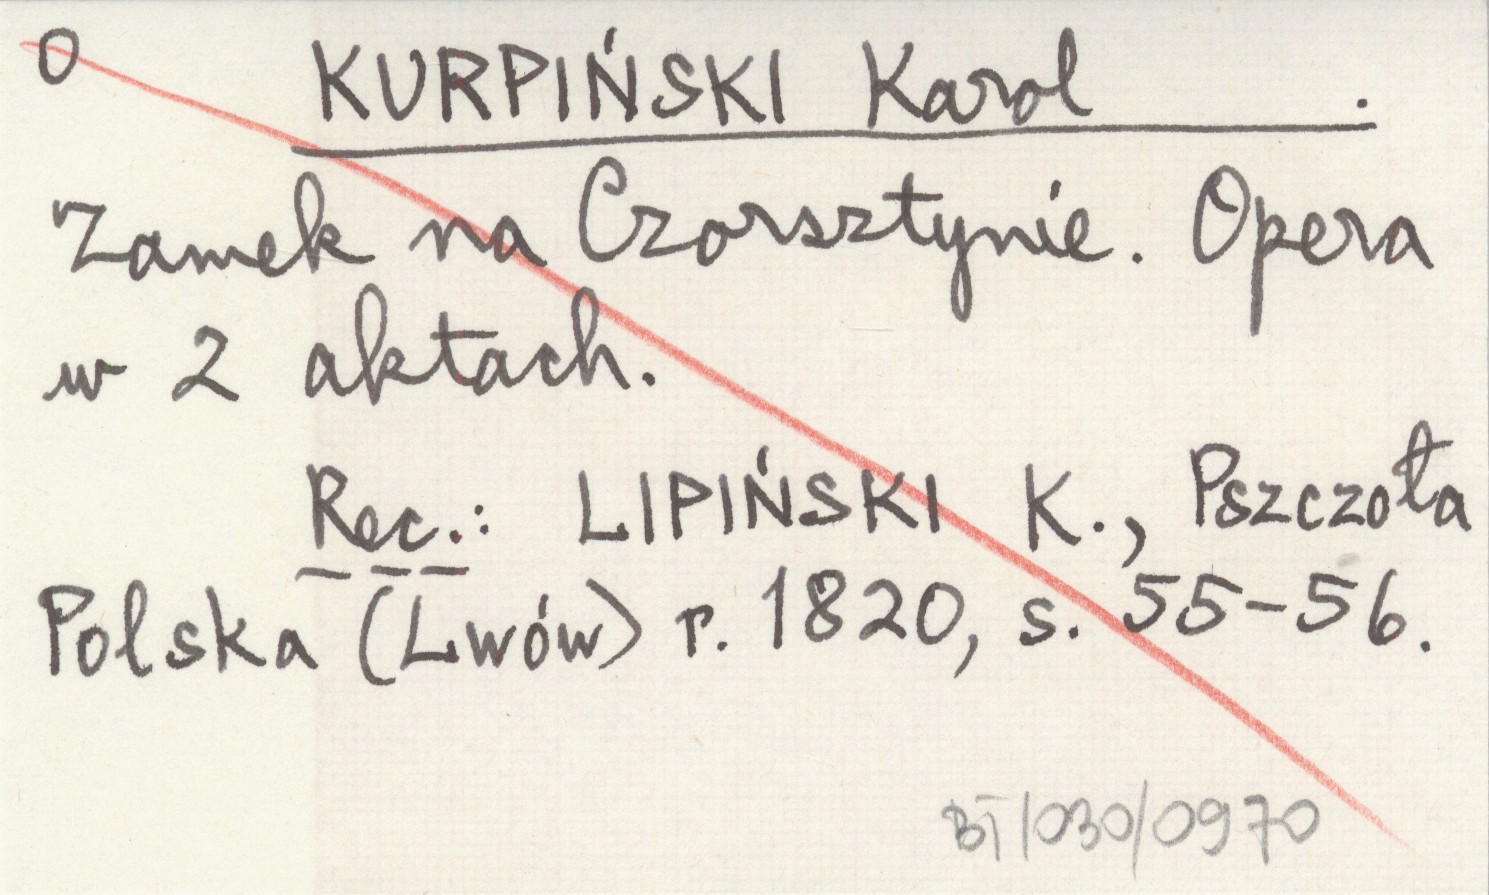 O KURPIŃSKI Karol .
Zamek na Czorsztynie. Opera
w 2 aktach.
Rec.: LIPIŃSKI K., Pszczoła
Polska (Lwów) r. 1820, s. 55-56.
BT/030/0970